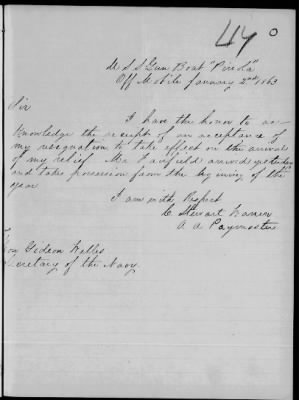 440
U S S Gun Boat "Pinola"
Off Mobile January 2nd 1863
Sir
I have the honor to ac-
knowledge the receipt of an acceptance of
my resignation to take effect on the arrival
of my relief. Mr. arrived yesterday
and takes possession from the beginning of the
year
I am with Respect
C Stewart Warren
A. A Paymaster
Hon Gideon Welles
Secretary of the Navy